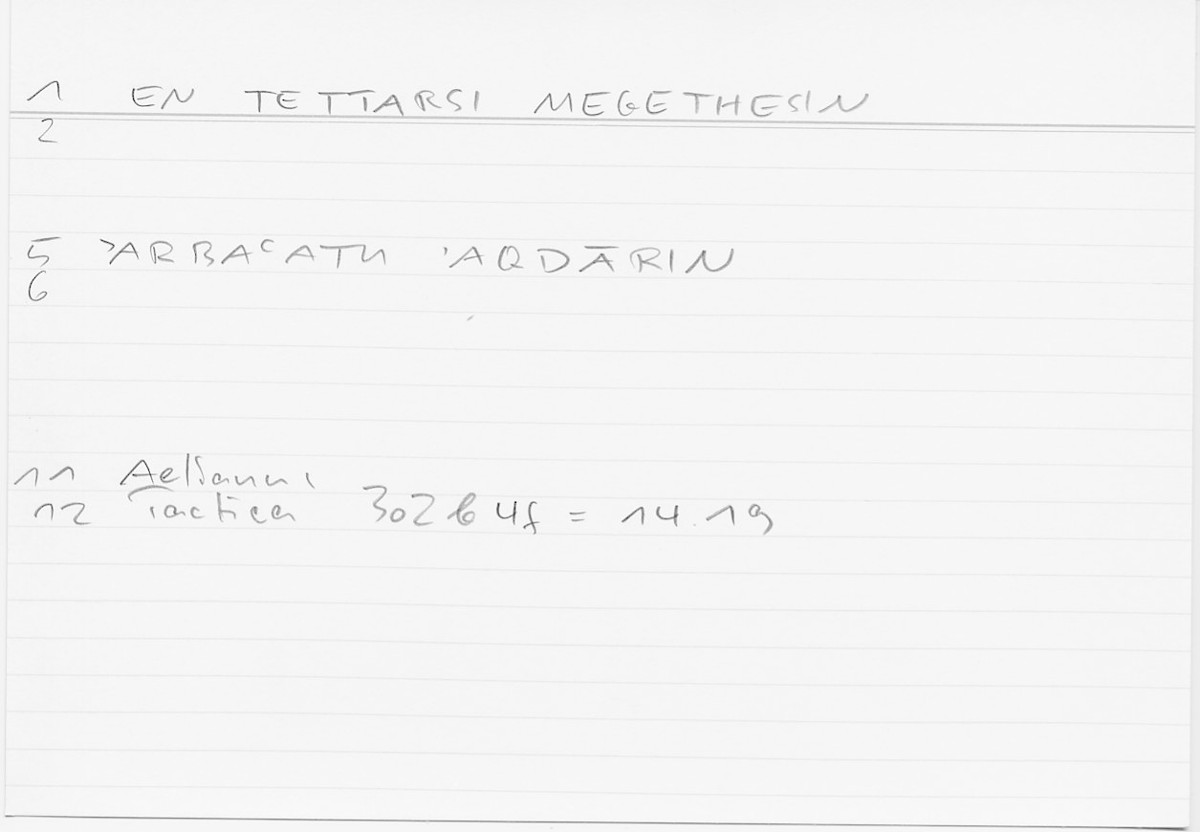 1 EN TETTARSI MEGETHESIN
2
5 ʾARBAʿATU ʾAQDĀRIN
6
11 Aeliani
12 Tactica 302 b 4f = 14.19